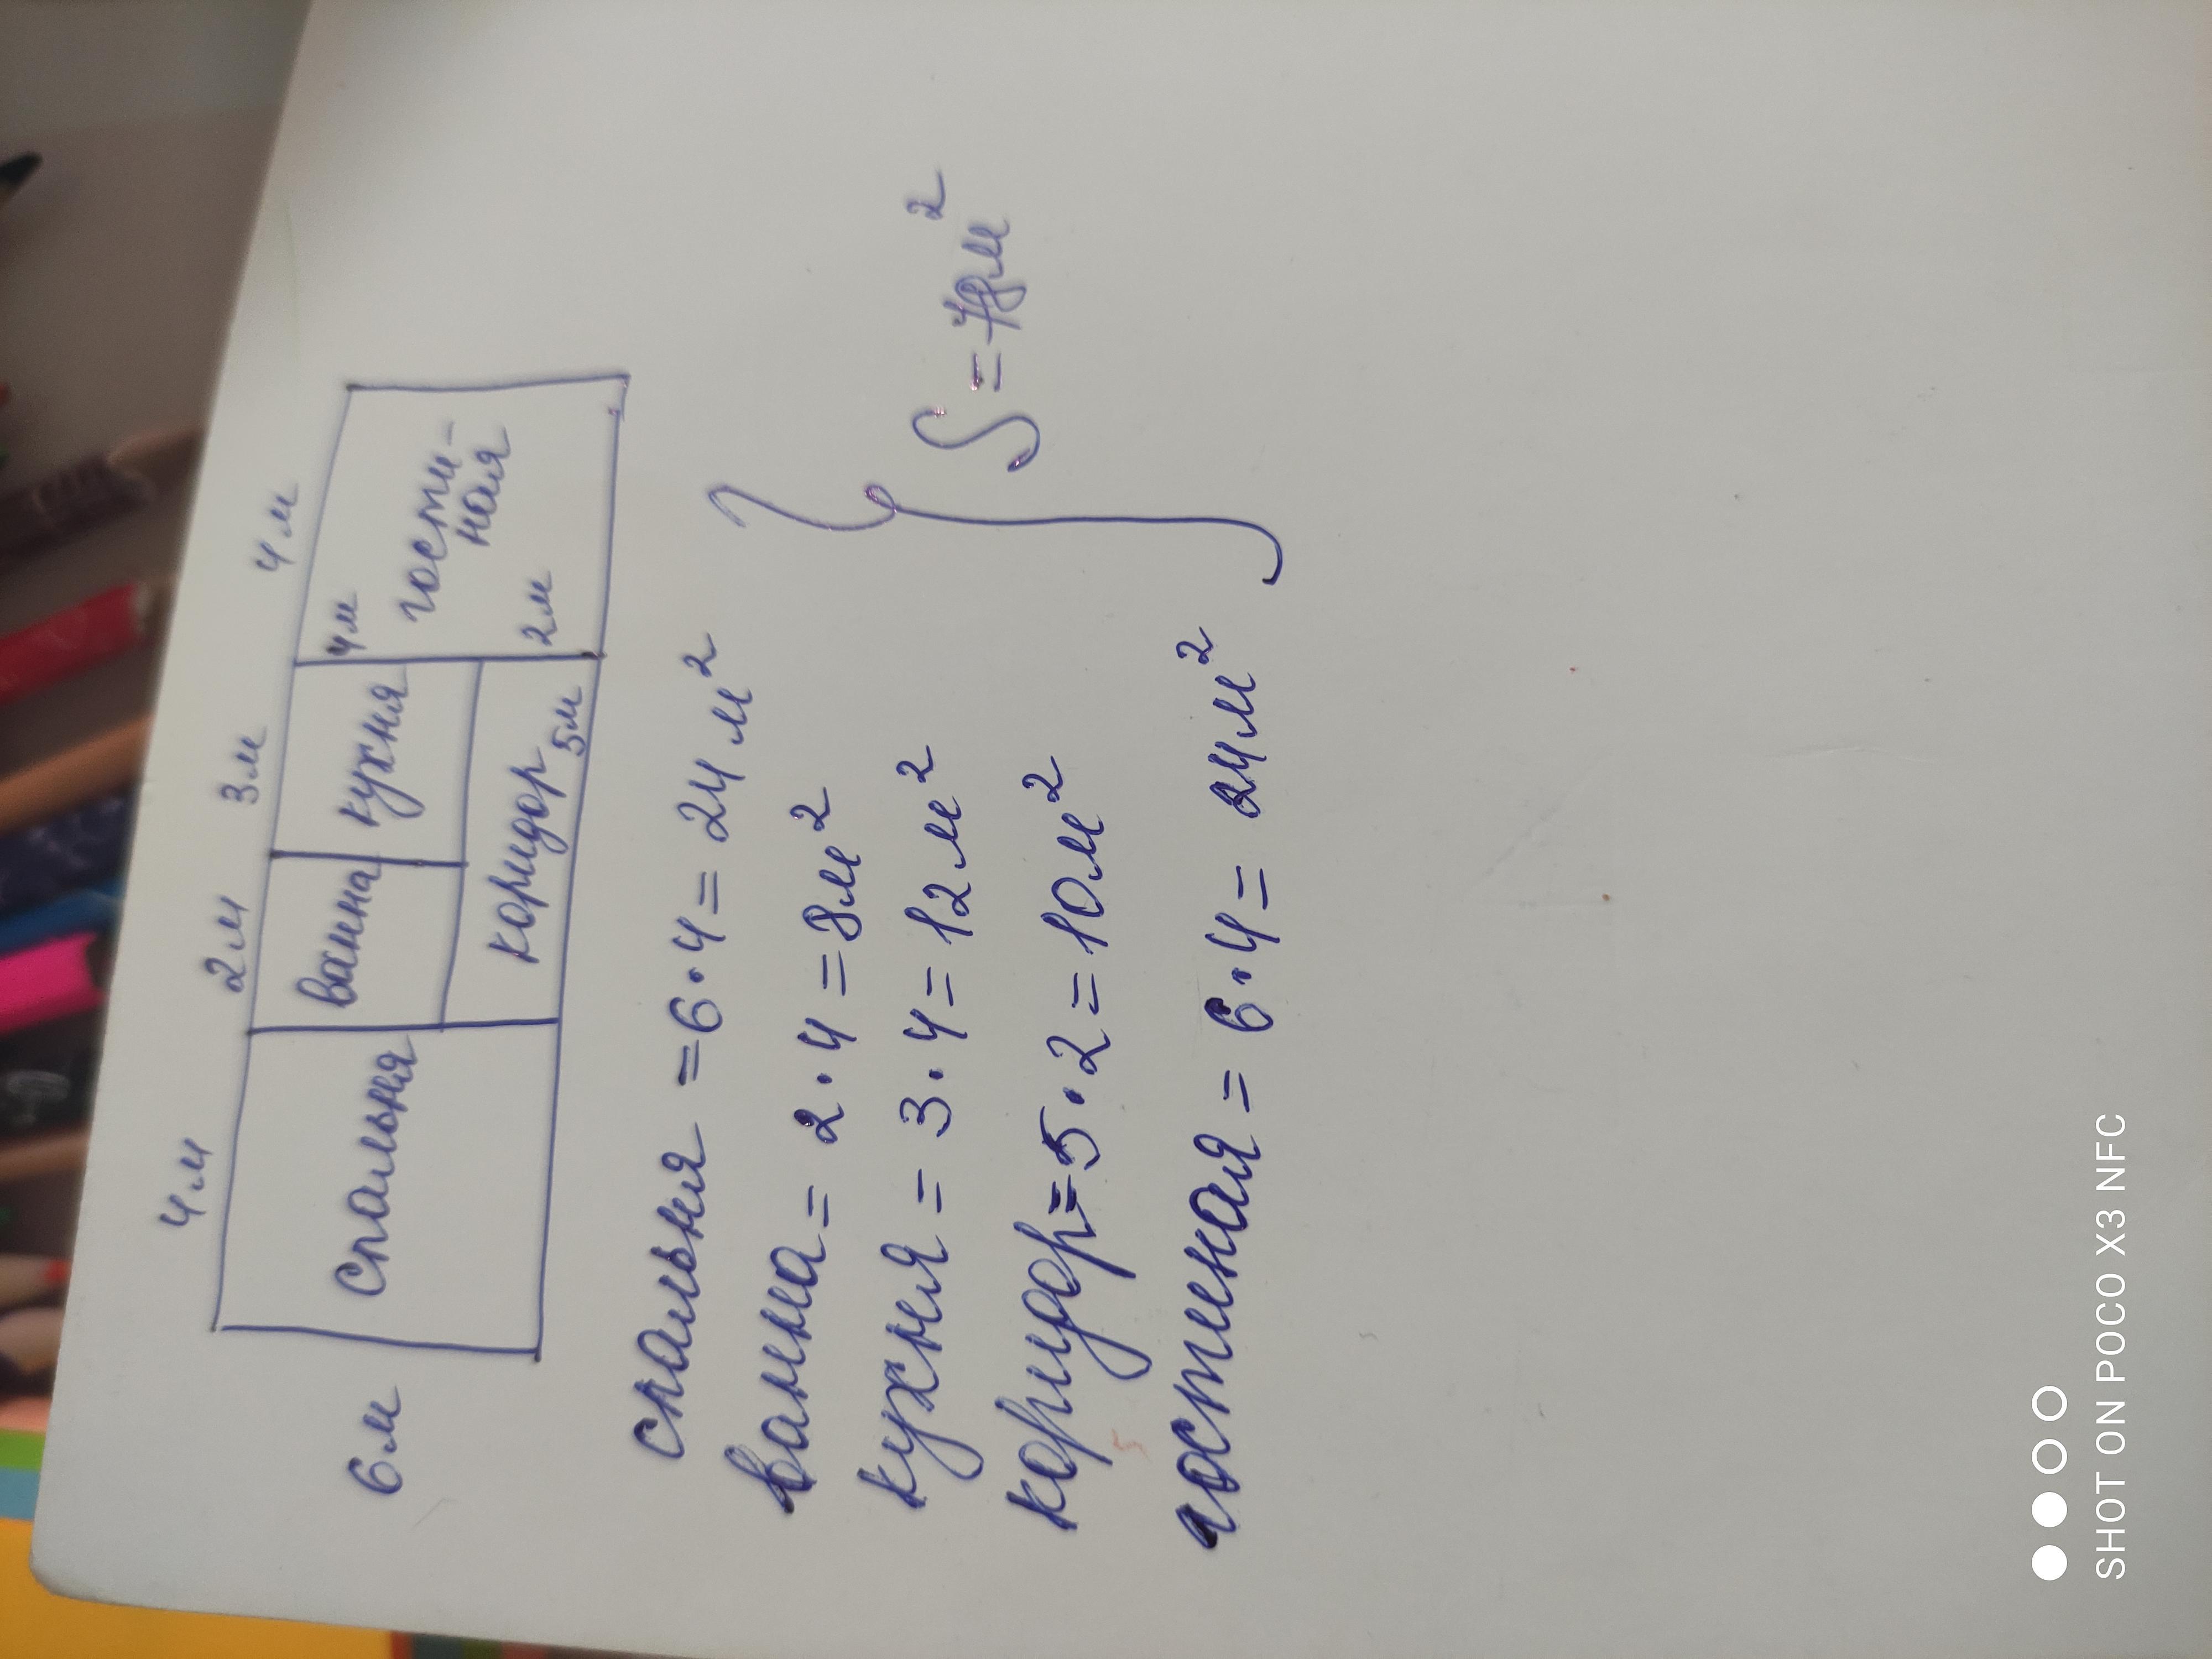 4м 2м 3м 4м
6м
спальня ванна кухня 4м гости-
ная
коридор 5м 2м
спальня = 6·4 = 24 м²
ванна = 2·4 = 8м²
кухня = 3·4 = 12м²
S = 78м²
коридор = 5·2 = 10м²
гостиная = 6·4 = 24м²
SHOT ON POCO X3 NFC